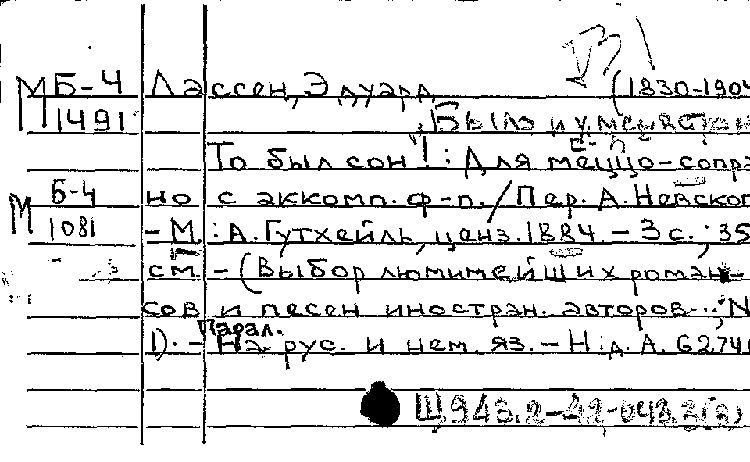 МБ-4 Лассен, Эдуард (1830-1904
1491 "Было и у меня
То был сон"! : Для меццо-сопра
Б-4 но с аккомп. ф-п. / Пер. А. Невског
М 1081 - М. : А. Гутхейль, ценз. 1884. - 3 с. ; 35
см - (Выбор любимейших роман-
сов и песен иностран. авторов... ; N
1). - Парал. На рус. и нем. яз. - Н.д. А. 6274
Щ943.2-42-643.3(3)